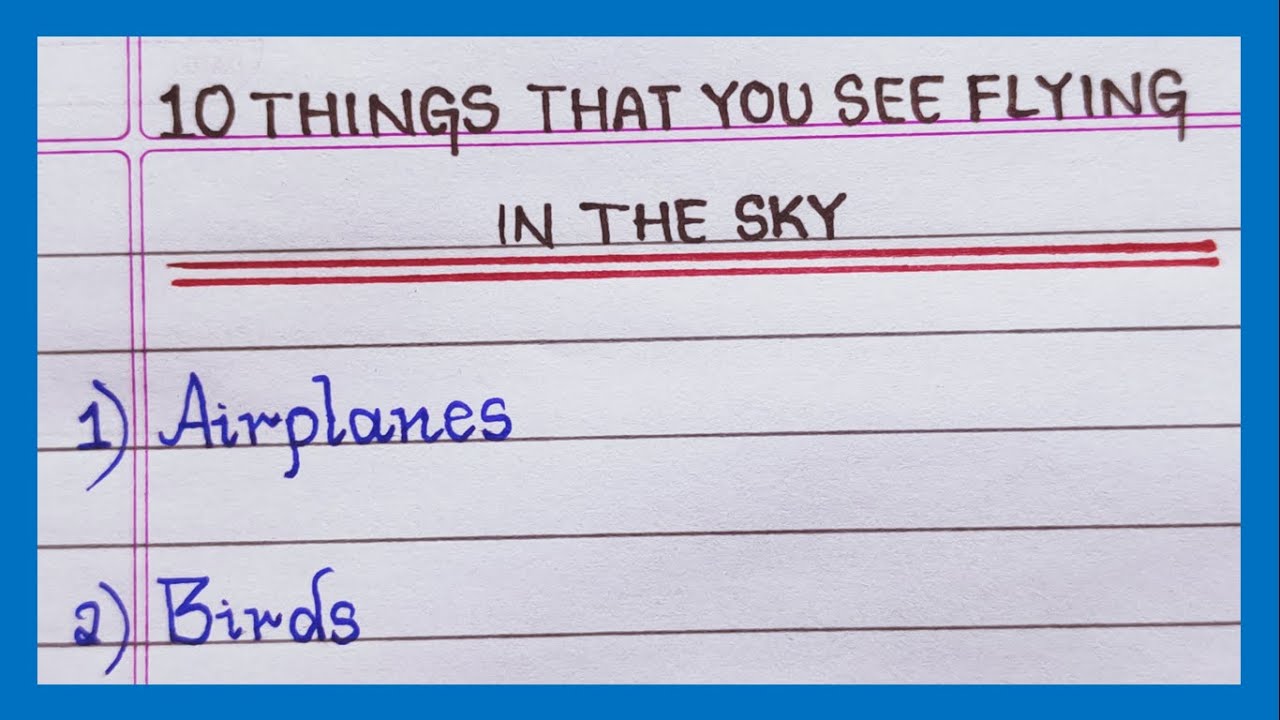 10 THINGS THAT YOU SEE FLYING
IN THE SKY
1) Airplanes
2) Birds